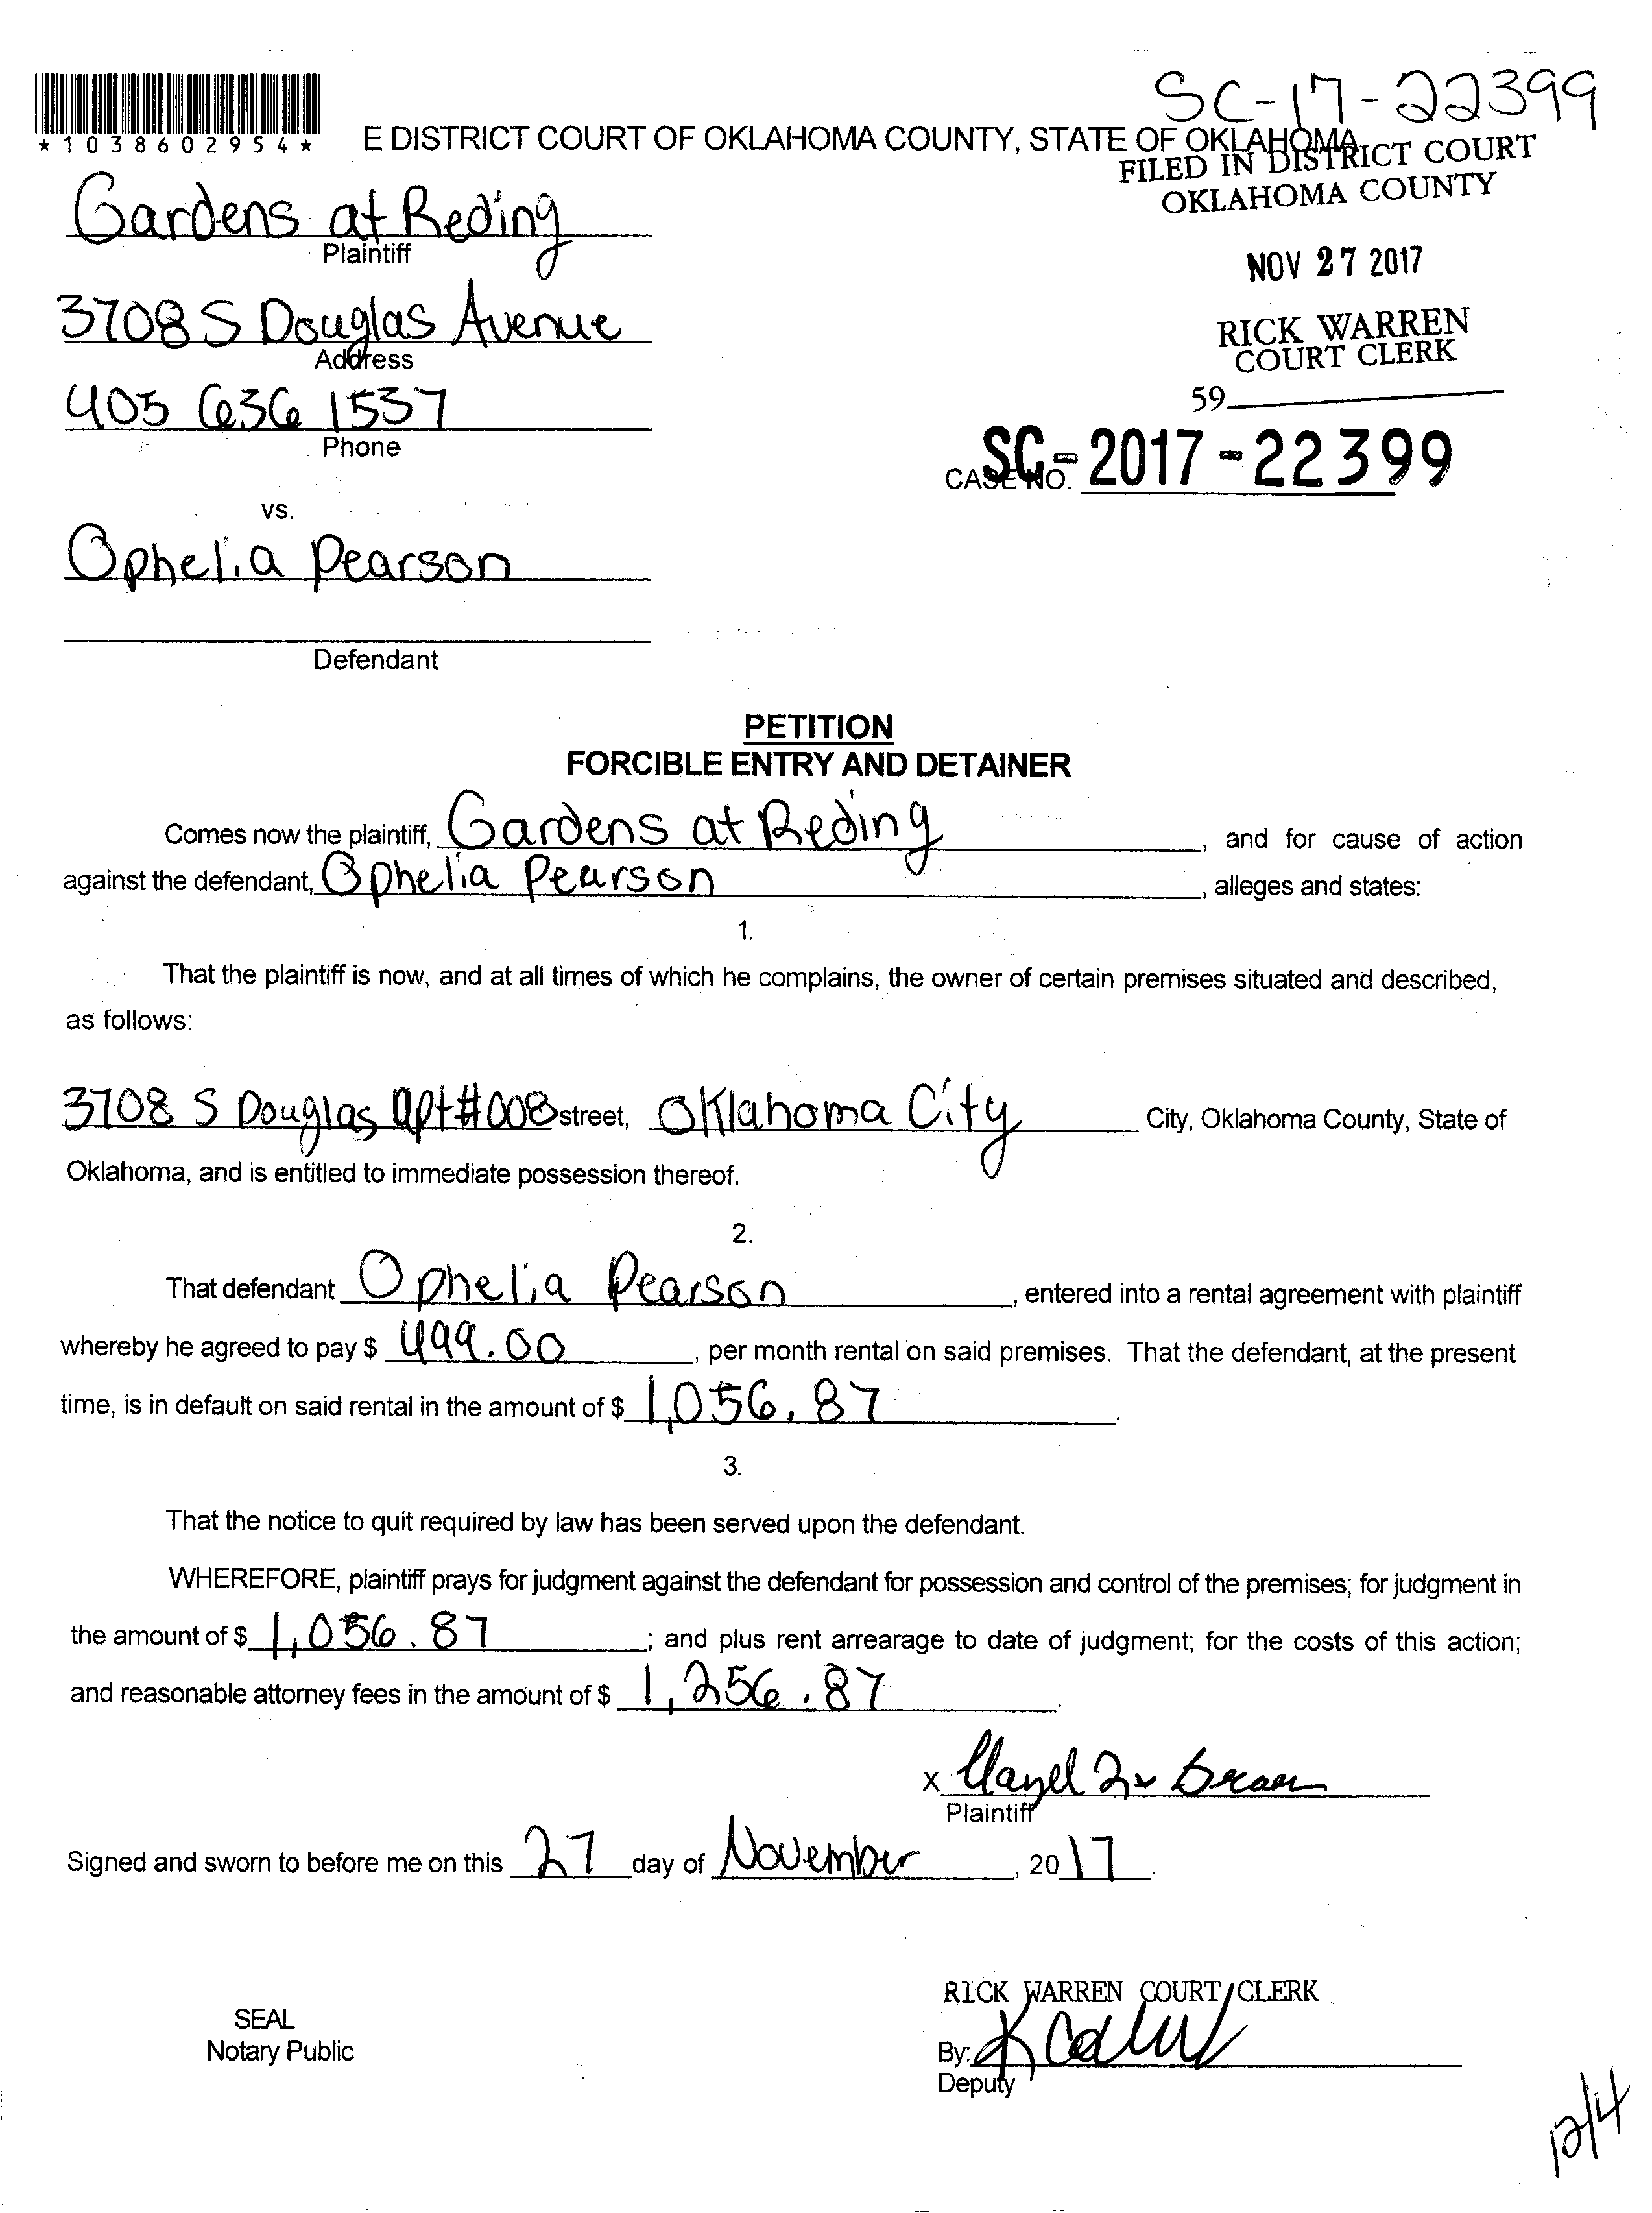 SC-17-22399
*1038602954*
E DISTRICT COURT OF OKLAHOMA COUNTY, STATE OF OKLAHOMA
FILED IN DISTRICT COURT
OKLAHOMA COUNTY
Gardens at Reding
Plaintiff
NOV 27 2017
3708 S Douglas Avenue
Address
RICK WARREN
COURT CLERK
405 636 1537
Phone
59
CASE NO. SC-2017-22399
vs.
Ophelia Pearson
Defendant
PETITION
FORCIBLE ENTRY AND DETAINER
Comes now the plaintiff, Gardens at Reding, and for cause of action
against the defendant, Ophelia Pearson, alleges and states:
1.
That the plaintiff is now, and at all times of which he complains, the owner of certain premises situated and described,
as follows:
3708 S Douglas apt#008 street, Oklahoma City City, Oklahoma County, State of
Oklahoma, and is entitled to immediate possession thereof.
2.
That defendant Ophelia Pearson, entered into a rental agreement with plaintiff
whereby he agreed to pay $ 499.00, per month rental on said premises. That the defendant, at the present
time, is in default on said rental in the amount of $ 1,056.87.
3.
That the notice to quit required by law has been served upon the defendant.
WHEREFORE, plaintiff prays for judgment against the defendant for possession and control of the premises; for judgment in
the amount of $ 1,056.87; and plus rent arrearage to date of judgment; for the costs of this action;
and reasonable attorney fees in the amount of $ 1,256.87.
x
Plaintiff
Signed and sworn to before me on this 27 day of November, 2017.
RICK WARREN COURT CLERK
SEAL
Notary Public
By:
Deputy
12/4